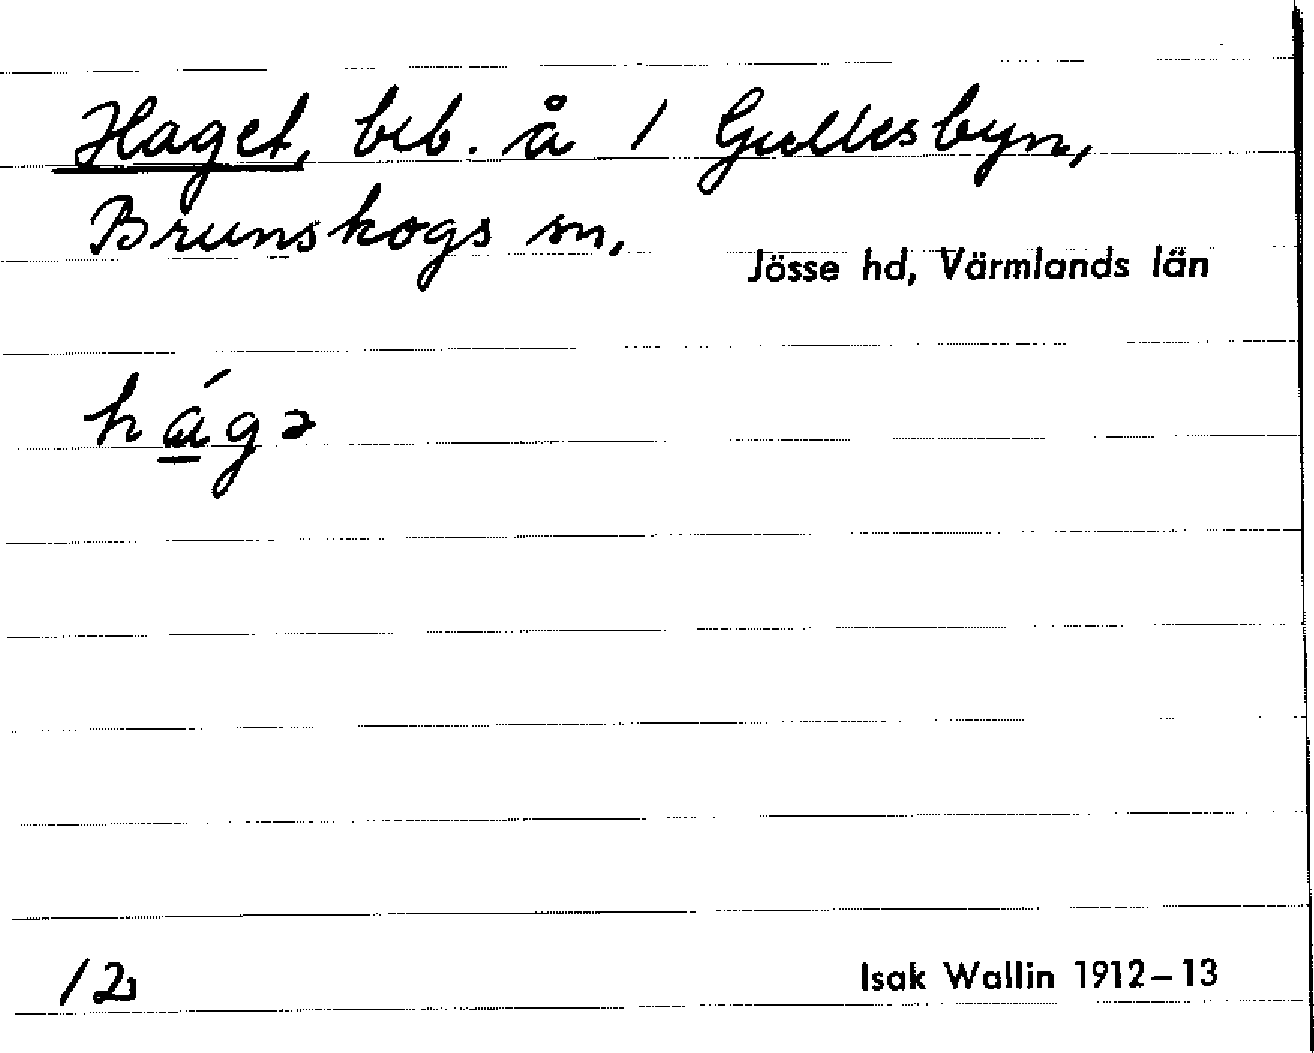 Haget, beb. å 1 Gullesbyn,
Brunskogs sn, Jösse hd, Värmlands län
há̱gə
12
Isak Wallin 1912–13